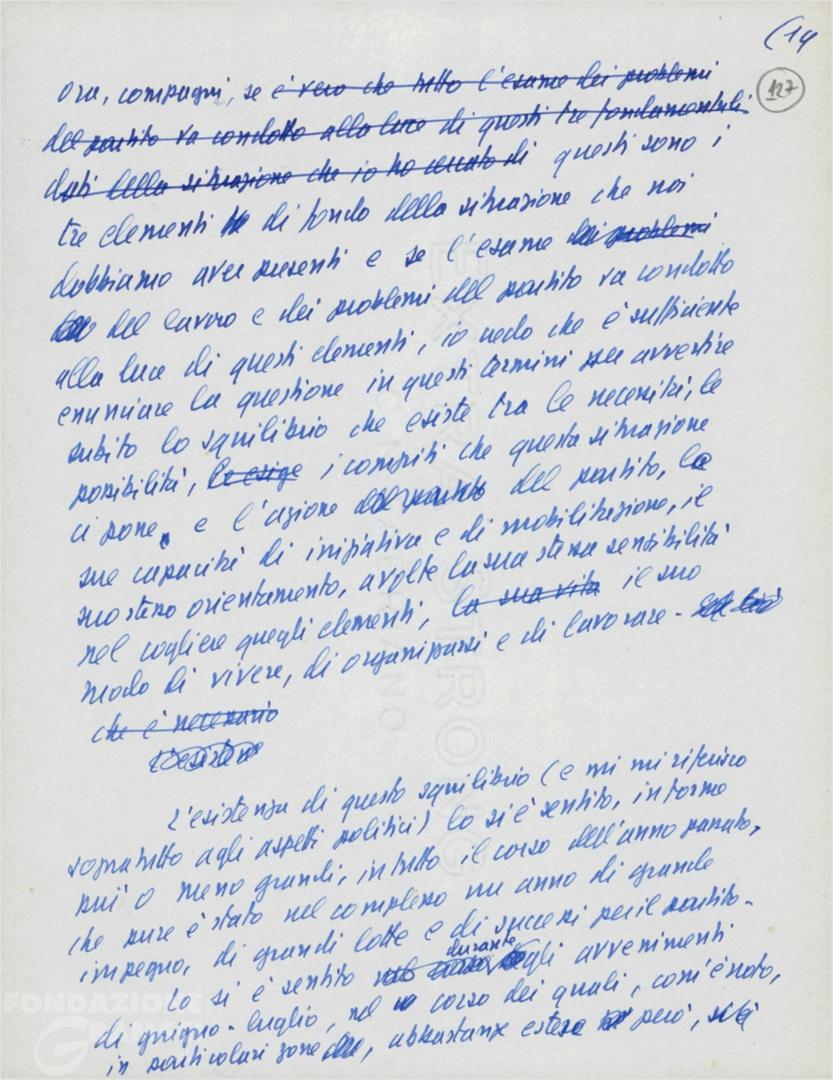 (14
127
Ora, compagni, se è vero che tutto l'esame dei problemi
del partito va condotto alla luce di questi tre fondamentali
dati della situazione che io ho cercato di questi sono i
tre elementi di fondo della situazione che noi
dobbiamo aver presenti e se l'esame dei problemi
del lavoro e dei problemi del partito va condotto
alla luce di questi elementi, io vedo che è sufficiente
enunciare la questione in questi termini per avvertire
subito lo squilibrio che esiste tra le necessità, le
possibilità, le esige i compiti che questa situazione
ci pone, e l'azione del partito del partito, le
sue capacità di iniziativa e di mobilitazione, il
suo stesso orientamento, a volte la sua stessa sensibilità
nel cogliere quegli elementi, la sua vita il suo
modo di vivere, di organizzarsi e di lavorare -
che è necessario
L'esistenza
L'esistenza di questo squilibrio (e mi mi riferisco
sopratutto agli aspetti politici) lo si è sentito, in forme
più o meno grandi, in tutto il corso dell'anno passato,
che pure è stato nel complesso un anno di grande
impegno, di grandi lotte e di successi per il partito -
Lo si è sentito durante gli avvenimenti
di giugno-luglio, nel corso dei quali, com'è noto,
in particolari zone, abbastanza estese però, si è
FONDAZIONE
EXTRA STRONG